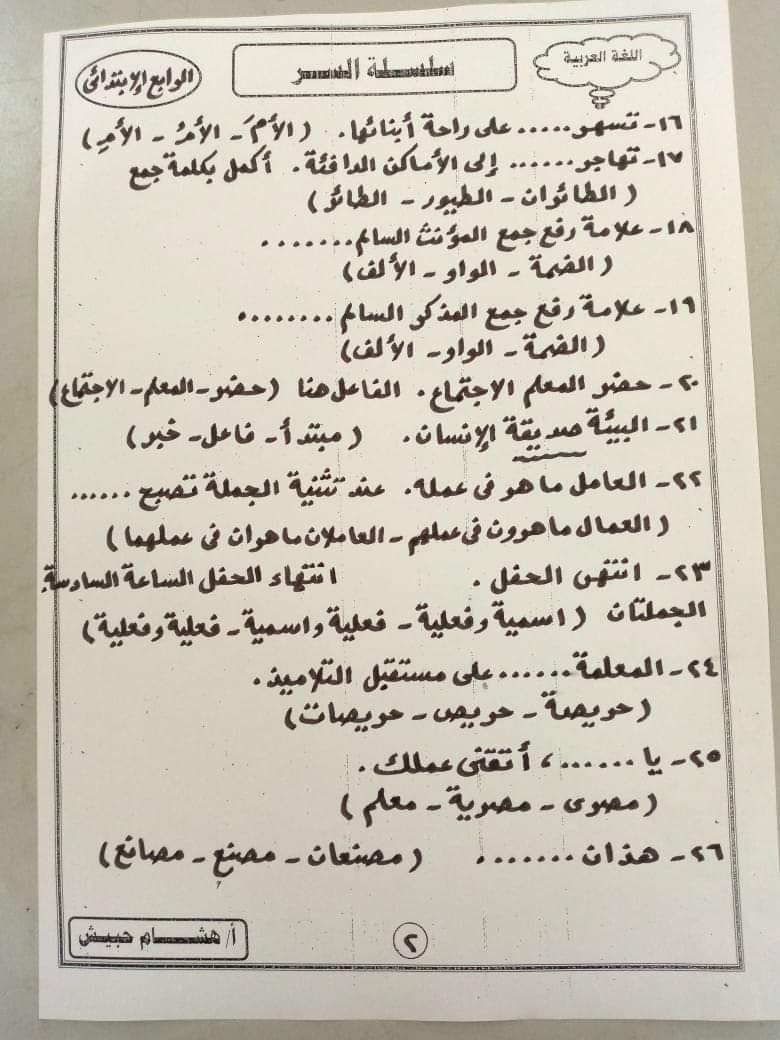 اللغة العربية
سلسلة السر
الرابع الابتدائى
١٦- تسهر...... على راحة أبنائها. (الأمَّ - الأمُّ - الأمِ)
١٧- تهاجر...... إلى الأماكن الدافئة. أكمل بكلمة جمع
(الطائران - الطيور - الطائر)
١٨- علامة رفع جمع المؤنث السالم.......
(الضمة - الواو - الألف)
١٩- علامة رفع جمع المذكر السالم ........
(الضمة - الواو - الألف)
٢٠- حضر المعلم الاجتماع. الفاعل هنا (حضر - المعلم - الاجتماع)
٢١- البيئة صديقة الإنسان. (مبتدأ - فاعل - خبر)
٢٢- العامل ماهر فى عمله. عند تثنية الجملة تصبح ......
(العمال ماهرون فى عملهم - العاملان ماهران فى عملهما)
٢٣- انتهى الحفل. انتهاء الحفل الساعة السادسة.
الجملتان (اسمية وفعلية - فعلية واسمية - فعلية وفعلية)
٢٤- المعلمة...... على مستقبل التلاميذ.
(حريصة - حريص - حريصات)
٢٥- يا ......، أتقنى عملك.
(مصرى - مصرية - معلم)
٢٦- هذان ....... (مصنعان - مصنع - مصانع)
٢
أ/ هشام حبيش